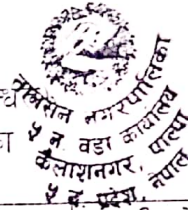 तानसेन नगरपालिका
५ नं वडा कार्यालय
कैलाशनगर, पाल्पा
५ नं. प्रदेश, नेपाल